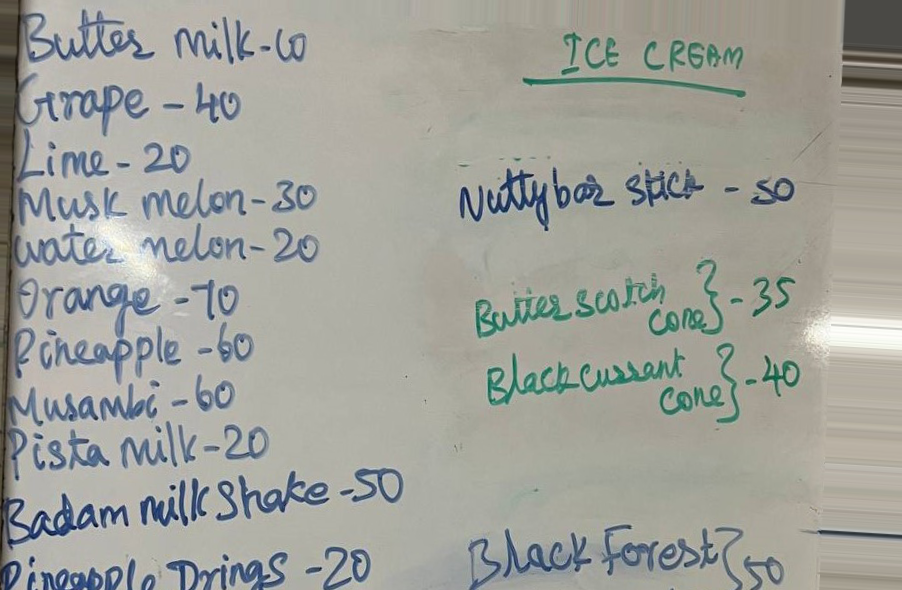 Butter milk-60
Grape - 40
Lime - 20
Musk melon-30
water melon-20
Orange -70
Pineapple -60
Musambi -60
Pista milk-20
Badam milk Shake -50
Pineapple Drings -20
ICE CREAM
Nuttybar stick - 50
Butterscotch
cone} - 35
Blackcurrant
cone} - 40
Black Forest} 50